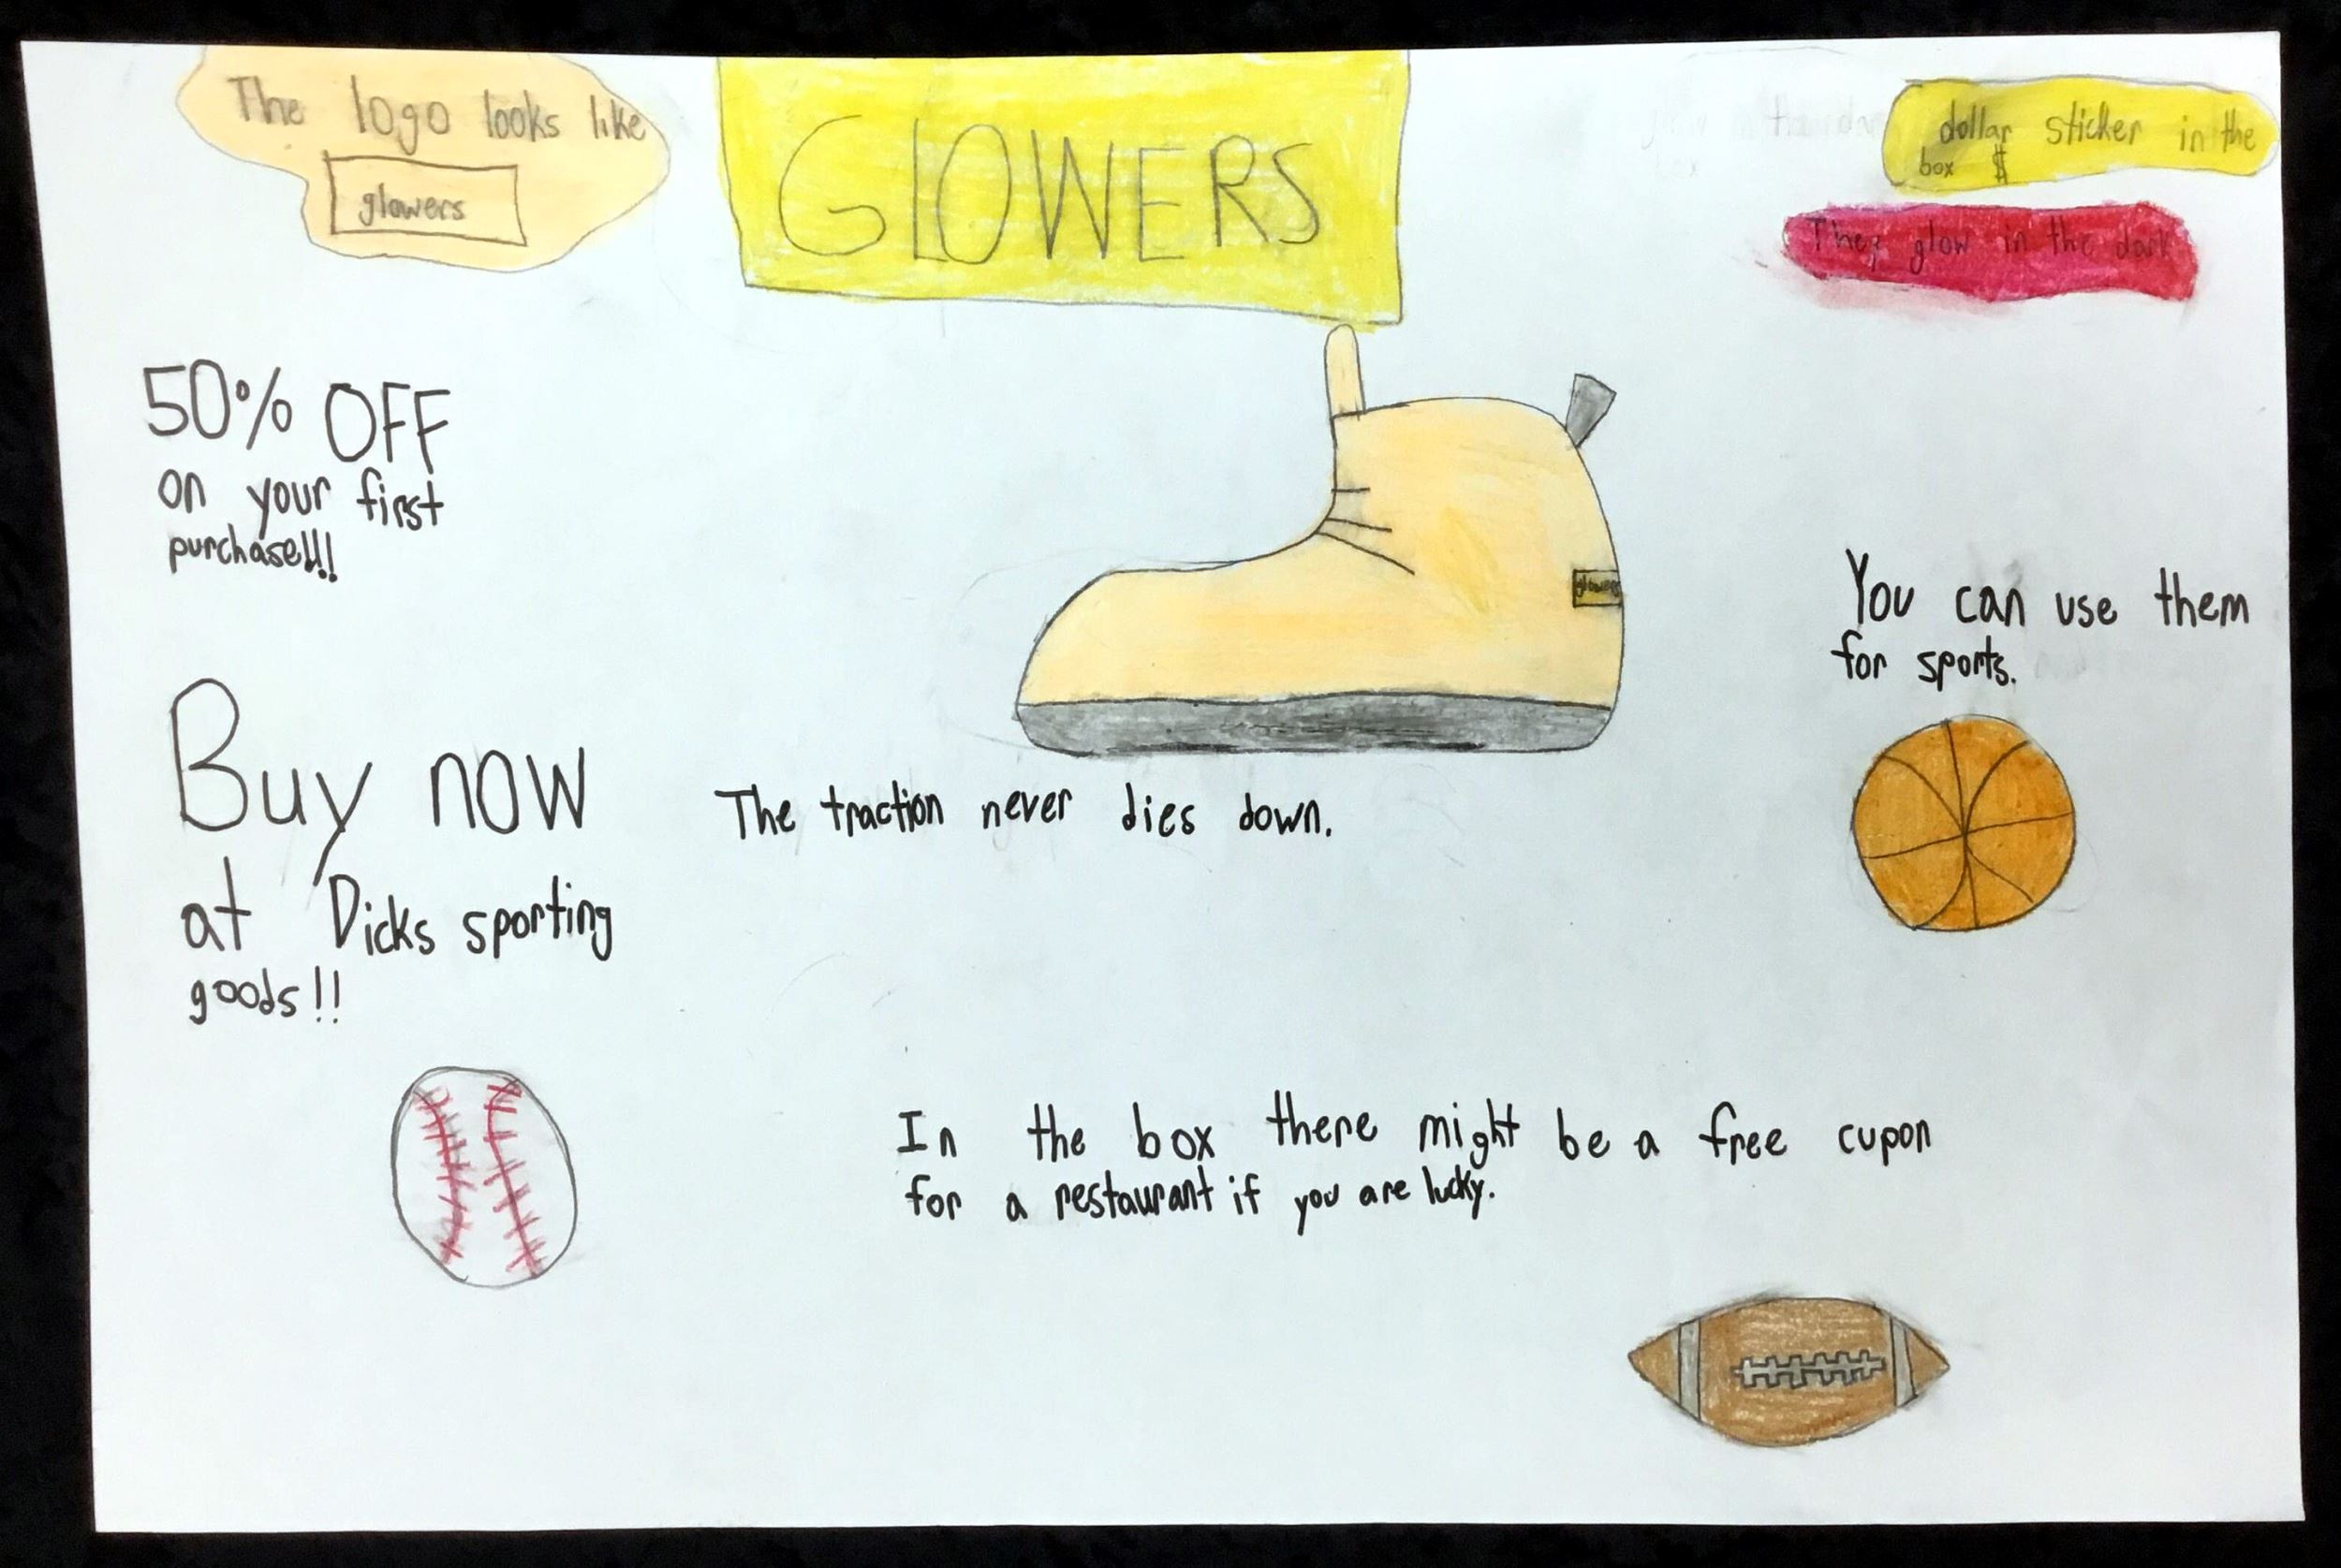 The logo looks like
glowers
GlOWERS
dollar sticker in the
box $
They glow in the dark
50% OFF
on your first
purchase!!!
glowers
You can use them
for sports.
Buy now
at Dicks sporting
goods!!
The traction never dies down.
In the box there might be a free cupon
for a restaurant if you are lucky.